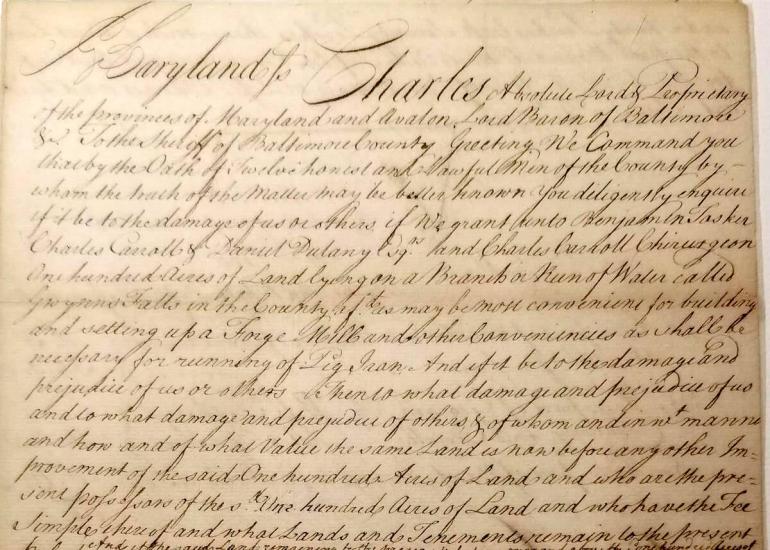 Maryland ss Charles Absolute Lord & Proprietary
of the provinces of Maryland and Avalon Lord Baron of Baltimore
&c To the Sheriff of Baltimore County Greeting We Command you
that by the Oath of Twelve honest and Lawful Men of the County by
whom the truth of the Matter may be better known You diligently enquire
if it be to the damage of us or others if We grant unto Benjamin Tasker
Charles Carroll & Daniel Dulany Esqrs and Charles Carroll Chirurgeon
One hundred Acres of Land lying on a Branch or Run of Water called
Gwynns Falls in the County afd. as may be most convenient for building
and setting up a Forge Mill and other Conveniencies as shall be
necessary for running of Pig Iron And if it be to the damage and
prejudice of us or others Then to what damage and prejudice of us
and to what damage and prejudice of others & of whom and in wt manner
and how and of what Value the same Land is now before any other Im=
provement of the said One hundred Acres of Land and who are the pre=
sent possessors of the sd. One hundred Acres of Land and who have the Fee
Simple thereof and what Lands and Tenements remain to the present